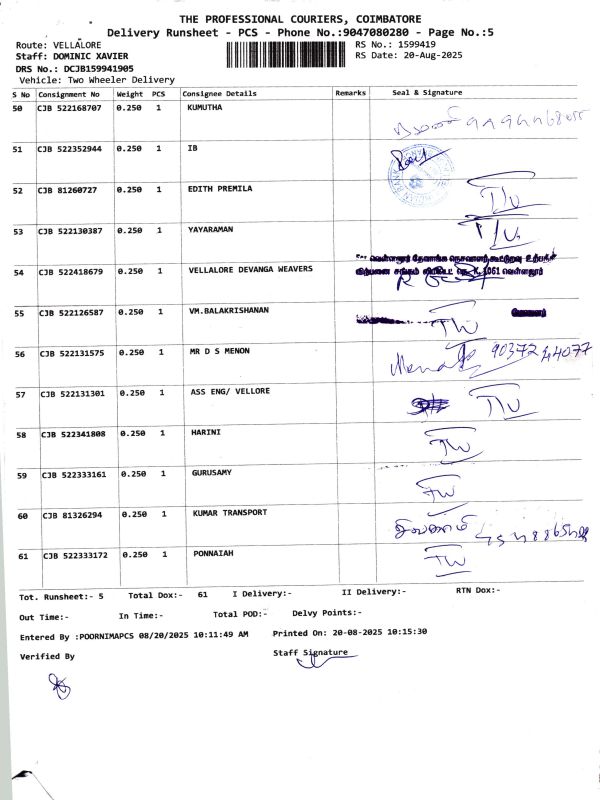 THE PROFESSIONAL COURIERS, COIMBATORE
Delivery Runsheet - PCS - Phone No.:9047080280 - Page No.:5
Route: VELLALORE RS No.: 1599419
Staff: DOMINIC XAVIER RS Date: 20-Aug-2025
DRS No.: DCJB159941905
Vehicle: Two Wheeler Delivery
S No Consignment No Weight PCS Consignee Details Remarks Seal & Signature
50 CJB 522168707 0.250 1 KUMUTHA
51 CJB 522352944 0.250 1 IB
52 CJB 81260727 0.250 1 EDITH PREMILA
53 CJB 522130387 0.250 1 YAYARAMAN
வெள்ளலூர் தேவாங்க நெசவாளர் கூட்டுறவு உற்பத்தி
54 CJB 522418679 0.250 1 VELLALORE DEVANGA WEAVERS விற்பனை சங்கம் லிமிடெட் நெ. K.1061 வெள்ளலூர்
55 CJB 522126587 0.250 1 VM.BALAKRISHANAN
56 CJB 522131575 0.250 1 MR D S MENON 90372 44077
57 CJB 522131301 0.250 1 ASS ENG/ VELLORE
58 CJB 522341808 0.250 1 HARINI
59 CJB 522333161 0.250 1 GURUSAMY
60 CJB 81326294 0.250 1 KUMAR TRANSPORT
61 CJB 522333172 0.250 1 PONNAIAH
Tot. Runsheet:- 5 Total Dox:- 61 I Delivery:- II Delivery:- RTN Dox:-
Out Time:- In Time:- Total POD:- Delvy Points:-
Entered By :POORNIMAPCS 08/20/2025 10:11:49 AM Printed On: 20-08-2025 10:15:30
Verified By Staff Signature